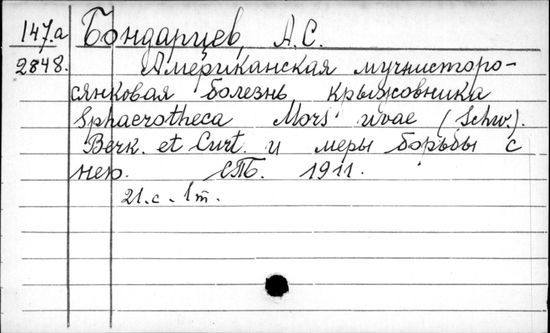 147.а Бондарцев, А.С.
2848. Американская мучнисторо-
сянковая болезнь крыжовника
Sphaerotheca Mors uvae (Schw).
Berk. et Curt. и меры борьбы с
нею. СПБ. 1911.
21.с. 1т.